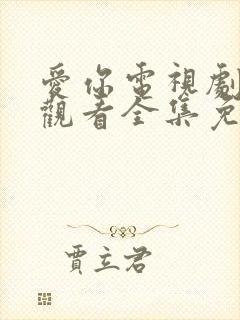 愛你電視劇
觀看全集免
賈立君